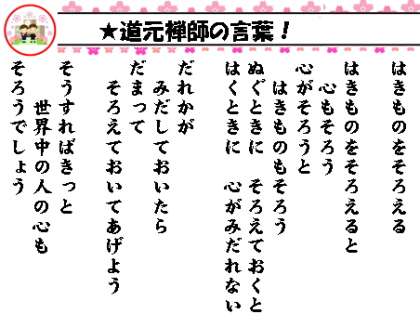 ★道元禅師の言葉！
はきものをそろえる
はきものをそろえると
心もそろう
心がそろうと
はきものもそろう
ぬぐときに　そろえておくと
はくときに　心がみだれない
だれかが
みだしておいたら
だまって
そろえておいてあげよう
そうすればきっと
世界中の人の心も
そろうでしょう